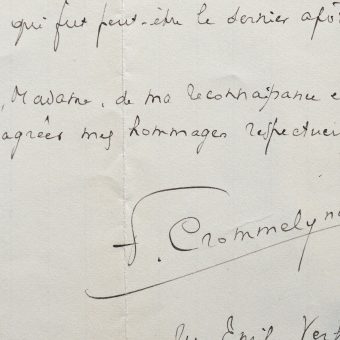 qui fut peut-être le dernier apô
, Madame, de ma reconnaissance e
agréer mes hommages respectue
F. Crommelynck
Emil Ver